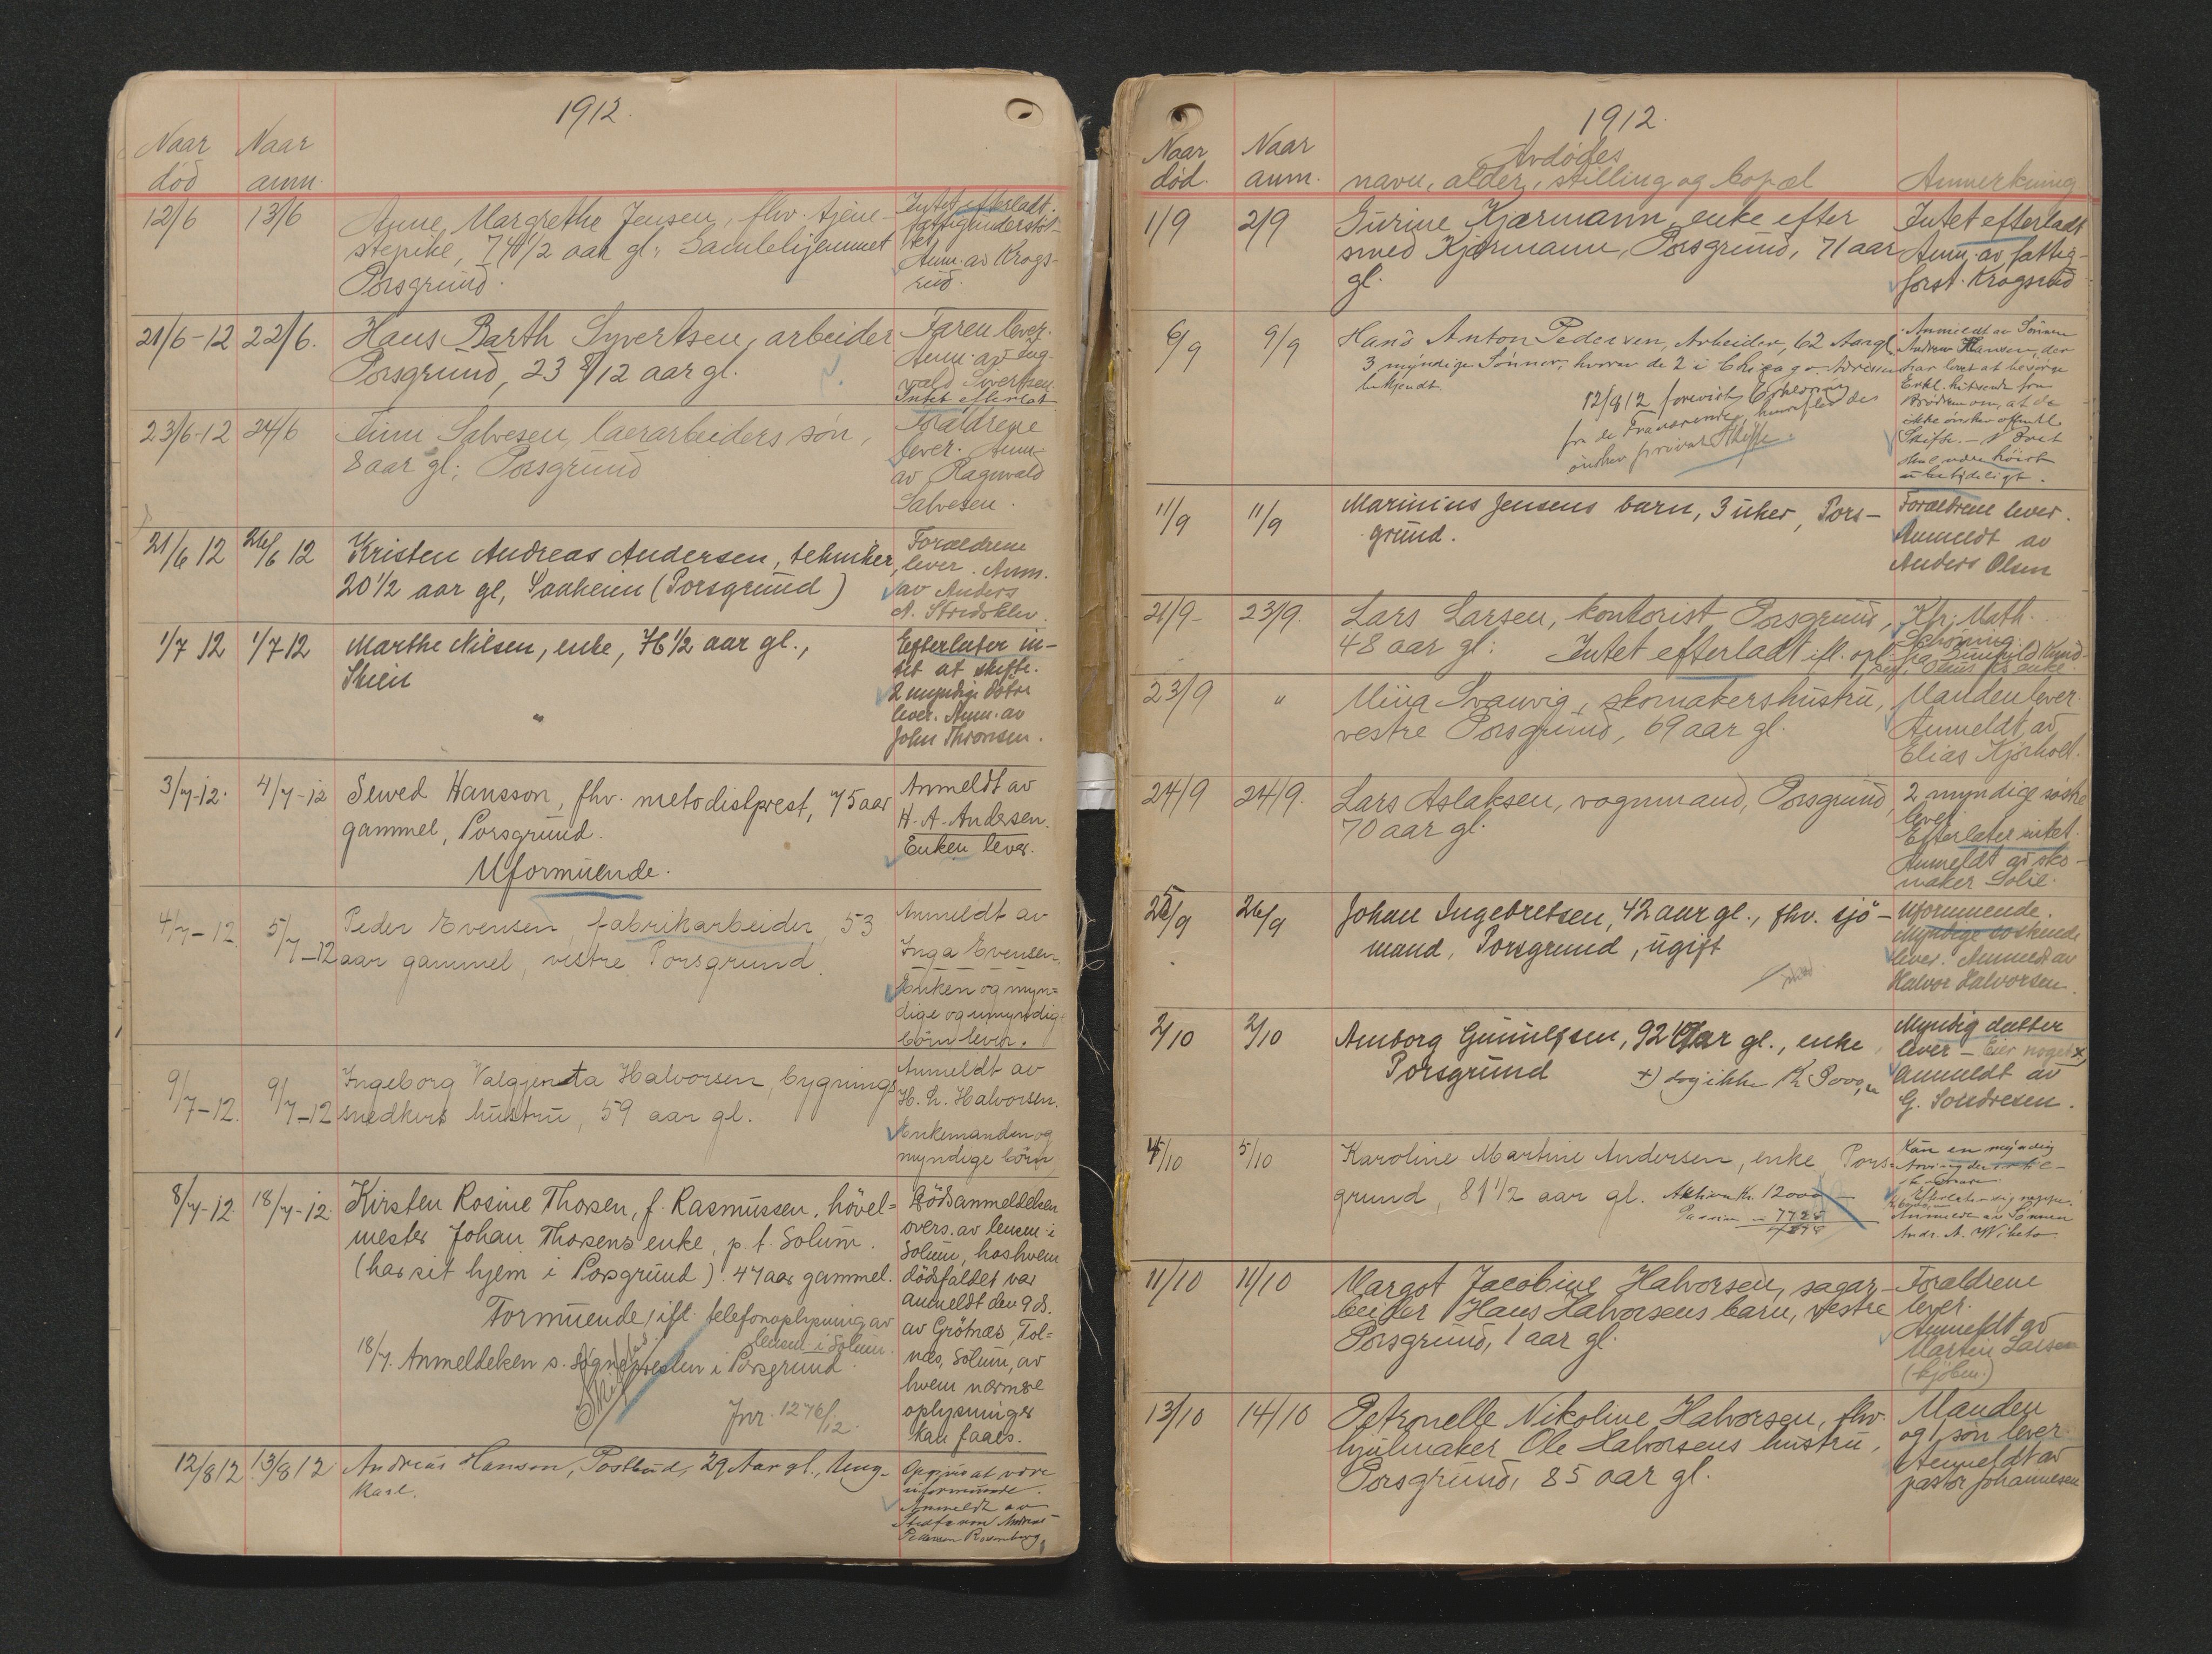 1912.
Naar død
Naar anm.
12/6
13/6
Anne Margrethe Jensen, fhv. tjene-
stepike, 74 1/2 aar gl., Gamlehjemmet
Porsgrund.
Intet efterladt.
fattigunderstöt-
tet
Anm. av Krogs-
rud.
21/6-12
22/6.
Hans Barth Syvertsen, arbeider
Porsgrund, 23 8/12 aar gl.
Faren lever.
Anm. av Ing-
vald Sivertsen.
Intet efterlat
23/6-12
24/6
Finn Salvesen, laerarbeiders søn,
8 aar gl., Porsgrund
Forældrene
lever. Anm.
av Ragnvald
Salvesen.
21/6 12
26/6 12
Kristen Andreas Andersen, tekniker,
20 1/2 aar gl, Saaheim (Porsgrund)
Forældrene
lever. Anm.
av Anders
A. Stridsklev.
1/7 12
1/7 12
Marthe Nilsen, enke, 76 1/2 aar gl.,
Skien
Efterlater in-
tet at skifte.
2 myndige døtre
lever. Anm. av
John Thronsen.
3/7-12.
4/7-12
Sewed Hansson, fhv. metodistprest, 75 aar
gammel, Porsgrund.
Uformuende.
Anmeldt av
H. A. Andersen.
Enken lever.
4/7-12.
5/7-12
Peder Evensen, fabrikarbeider, 53
aar gammel, vestre Porsgrund.
Anmeldt av
Inga Evensen.
Enken og myn-
dige og umyndige
börn lever.
9/7-12.
9/7-12
Ingeborg Valgjenta Halvorsen, bygnings
snedkers hustru, 59 aar gl.
Anmeldt av
H. L. Halvorsen.
Enkemanden og
myndige börn
8/7-12
18/7-12
Kirsten Rosine Thorsen, f. Rasmussen, hövel-
mester Johan Thorsens enke, p. t. Solum.
(har sit hjem i Porsgrund). 47 aar gammel.
Formuende, ifl. telefonoplysning av
lensm. i Solum.
18/7. Anmeldelsen s. Sognepresten i Porsgrund.
Jnr. 1276/12.
Dödsanmeldelsen
overs. av lensm. i
Solum, hos hvem
dödsfaldet var
anmeldt den 9 ds.
av Grötnæs, Tol-
næs, Solum, av
hvem nærmere
oplysninger
kan faaes.
12/8 12
13/8 12
Andreas Hansen, Postbud, 29 Aar gl., Ung-
karl.
Opgives at være
uformuende.
Anmeldt av
Andreas
Pedersen Rosenberg.
1912.
Naar død.
Naar anm.
Avdødes
navn, alder, stilling og bopæl
Anmerkning
1/9
2/9
Gurine Kjærmann, enke efter
smed Kjærmann, Porsgrund, 71 aar
gl.
Intet efterladt
Anm. av fattig-
forst. Krogsrud
6/9
9/9
Hans Anton Pedersen, Arbeider, 62 Aar gl.
3 myndige Sönner, hvorav de 2 i Chicago. Adressen
bekjendt.
12/9 12 forevist Erklæring
fra de fraværende, hvorefter des
önsker privat Skifte.
Anmeldt av Sönnen
Andrew Hansen, der
har lovet at besörge
Erkl. hitsendt fra
Brödrene om, at de
ikke önsker offentl.
Skifte. - Boet
skal være höist
ubetydeligt.
11/9
11/9
Marinius Jensens barn, 3 uker, Pors-
grund.
Forældrene lever.
Anmeldt av
Anders Olsen
21/9
23/9.
Lars Larsen, kontorist, Porsgrund,
48 aar gl. Intet efterladt ifl. opl.
Kfr. Math.
Schöning.
23/9
"
Mina Svanvig, skomakershustru,
vestre Porsgrund, 69 aar gl.
Manden lever.
Anmeldt av
Elias Kjörholt.
24/9
24/9.
Lars Aslaksen, vognmand, Porsgrund,
70 aar gl.
2 myndige söstre
lever.
Efterlater intet.
Anmeldt av sko-
maker Solie.
25/9
26/9
Johan Ingebretsen, 42 aar gl., fhv. sjö-
mand, Porsgrund, ugift
Uformuende.
Myndige söskende
lever. Anmeldt av
Halvor Halvorsen.
2/10
2/10
Amborg Gunulfsen, 92 aar gl., enke,
Porsgrund
x) dog ikke
Myndig datter
lever - Eier noget x)
Anmeldt av
G. Sondresen.
4/10
5/10
Karoline Martine Andersen, enke, Pors-
grund, 81 1/2 aar gl. Aktiva Kr. 12000
Kun en myndig
Anmeldt av Sönnen
11/10
11/10
Margot Jacobine Halvorsen, sagar-
beider Hans Halvorsens barn, vestre
Porsgrund, 1 aar gl.
Forældrene
lever.
Anmeldt av
Martin Larsen
(kjöbm.)
13/10
14/10
Petronelle Nikoline Halvorsen, fhv.
hjulmaker Ole Halvorsens hustru,
Porsgrund, 85 aar gl.
Manden
og 1 sön lever.
Anmeldt av
pastor Johannesen